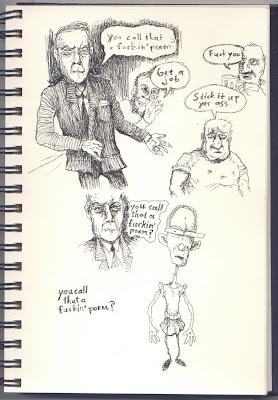 you call that
a fuckin' poem
Get a
job
Fuck you
Stick it up
yer ass
you call
that a
fuckin'
poem?
you call
that a
fuckin' poem?